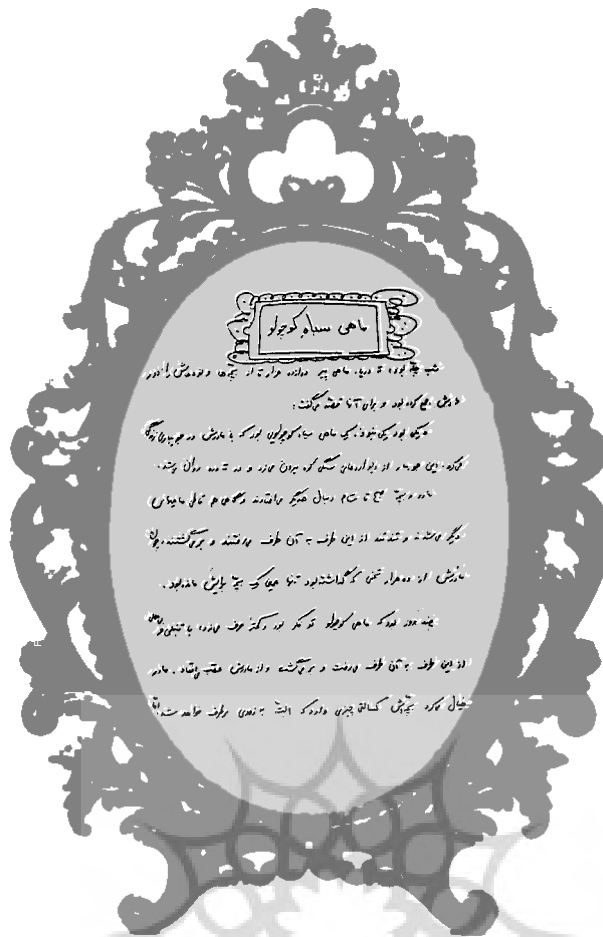 ماهی سیاه کوچولو
شب چله بود. ته دریا، ماهی پیر دوازده هزار تا از بچه‌ها و نوه‌هاش را دور
خودش جمع کرده بود و برای آنها قصه می‌گفت:
یکی بود یکی نبود. یک ماهی سیاه کوچولویی بود که با مادرش در جویباری زندگی
می‌کرد. این جویبار از دیواره‌های سنگی کوه بیرون می‌زد و در ته دره روان می‌شد.
مادر و بچه صبح تا شام دنبال همدیگر می‌افتادند و گاهی هم قاطی ماهی‌های
دیگر می‌شدند و تند تند از این طرف به آن طرف می‌رفتند و بر می‌گشتند.
مادرش از ده هزار تخمی که گذاشته بود تنها همین یک بچه برایش مانده بود.
چند روز بود که ماهی کوچولو تو فکر بود و کمتر حرف می‌زد. با تنبلی و
از این طرف به آن طرف می‌رفت و بر می‌گشت و از مادرش عقب می‌افتاد. مادر
خیال می‌کرد بچه‌اش کسالتی چیزی دارد که البته به زودی برطرف خواهد شد.